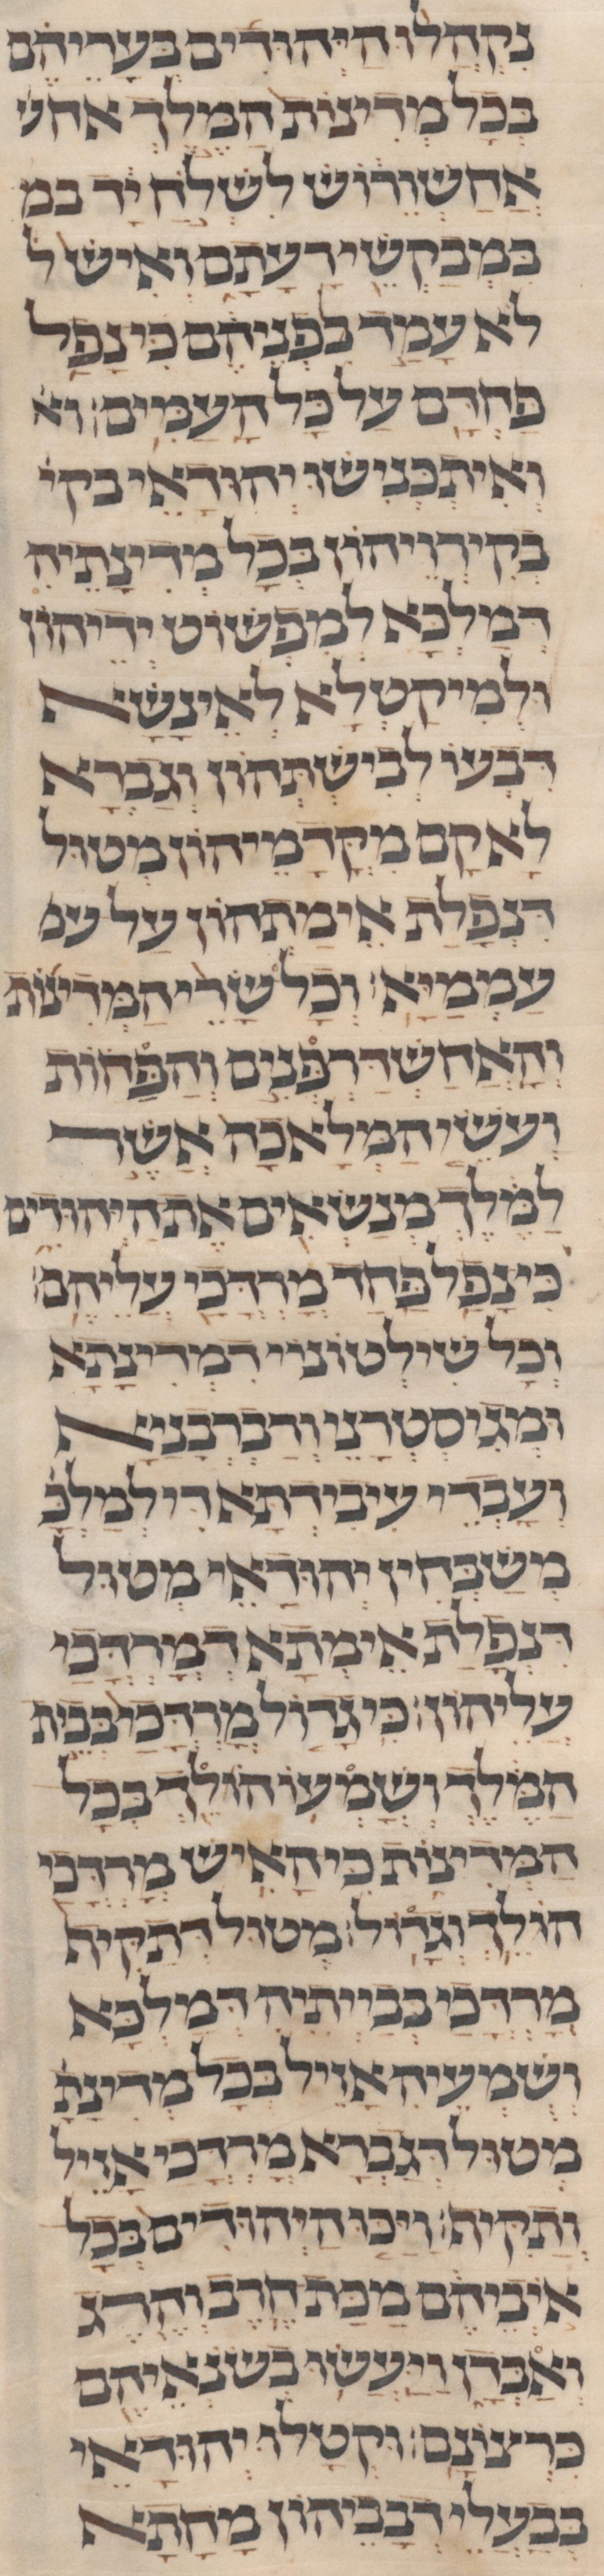 נִקְהֲלוּ הַיְּהוּדִים בְּעָרֵיהֶם
בְּכָל מְדִינוֹת הַמֶּלֶךְ אחש
אֲחַשְׁוֵרוֹשׁ לִשְׁלֹחַ יָד במ
בִּמְבַקְשֵׁי רָעָתָם וְאִישׁ ל
לֹא עָמַד בִּפְנֵיהֶם כִּי נָפַל
פַּחְדָּם עַל כָּל הָעַמִּים׃ וא
וְאִיתְכְּנִישׁוּ יְהוּדָאֵי בקי
בְּקִירְוֵיהוֹן בְּכָל מְדִינָתֵיהּ
דְמַלְכָּא לְמִפְשׁוֹט יְדֵיהוֹן
וּלְמִיקְטְלָא לֶאֱינָשַׁיָא
דִּבְעוֹ לְבִישְׁתְּהוֹן וְגַבְרָא
לָא קָם מִקֳּדָמֵיהוֹן מְטוּל
דִּנְפָלַת אֵימְתְהוֹן עַל עמ
עַמְמַיָּא׃ וְכָל שָׂרֵי הַמְּדִינוֹת
וְהָאֲחַשְׁדַּרְפְּנִים וְהַפַּחוֹת
וְעֹשֵׂי הַמְּלָאכָה אֲשֶׁר
לַמֶּלֶךְ מְנַשְּׂאִים אֶת הַיְּהוּדִים
כִּי נָפַל פַּחַד מָרְדֳּכַי עֲלֵיהֶם׃
וְכָל שִׁילְטוֹנֵי דִמְדִינָתָא
וּמְגִיסְטְרָנֵי וְרַבְרְבָנַיָא
וְעָבְדֵי עִיבִידְתָא דִי לְמַלְכָּ
מְשַׁבְּחִין יְהוּדָאֵי מְטוּל
דִּנְפָלַת אֵימְתָא דְמָרְדֳּכַי
עֲלֵיהוֹן׃ כִּי גָדוֹל מָרְדֳּכַי בְּבֵית
הַמֶּלֶךְ וְשָׁמְעוֹ הוֹלֵךְ בְּכָל
הַמְּדִינוֹת כִּי הָאִישׁ מָרְדֳּכַי
הוֹלֵךְ וְגָדוֹל׃ מְטוּל דְּתַקִּיף
מָרְדֳּכַי בְּבַיְיתֵיהּ דְּמַלְכָּא
וְשִׁמְעֵיהּ אָזֵיל בְּכָל מְדִינָתָ
מְטוּל דְּגַבְרָא מָרְדֳּכַי אָזֵיל
וְתַקִּיף׃ וַיַּכּוּ הַיְּהוּדִים בְּכָל
אֹיְבֵיהֶם מַכַּת חֶרֶב וְהֶרֶג
וְאַבְדָן וַיַּעֲשׂוּ בְשֹׂנְאֵיהֶם
כִּרְצוֹנָם׃ וּקְטָלוּ יְהוּדָאֵי
בְּבַעֲלֵי דְבָבֵיהוֹן מְחָתָא